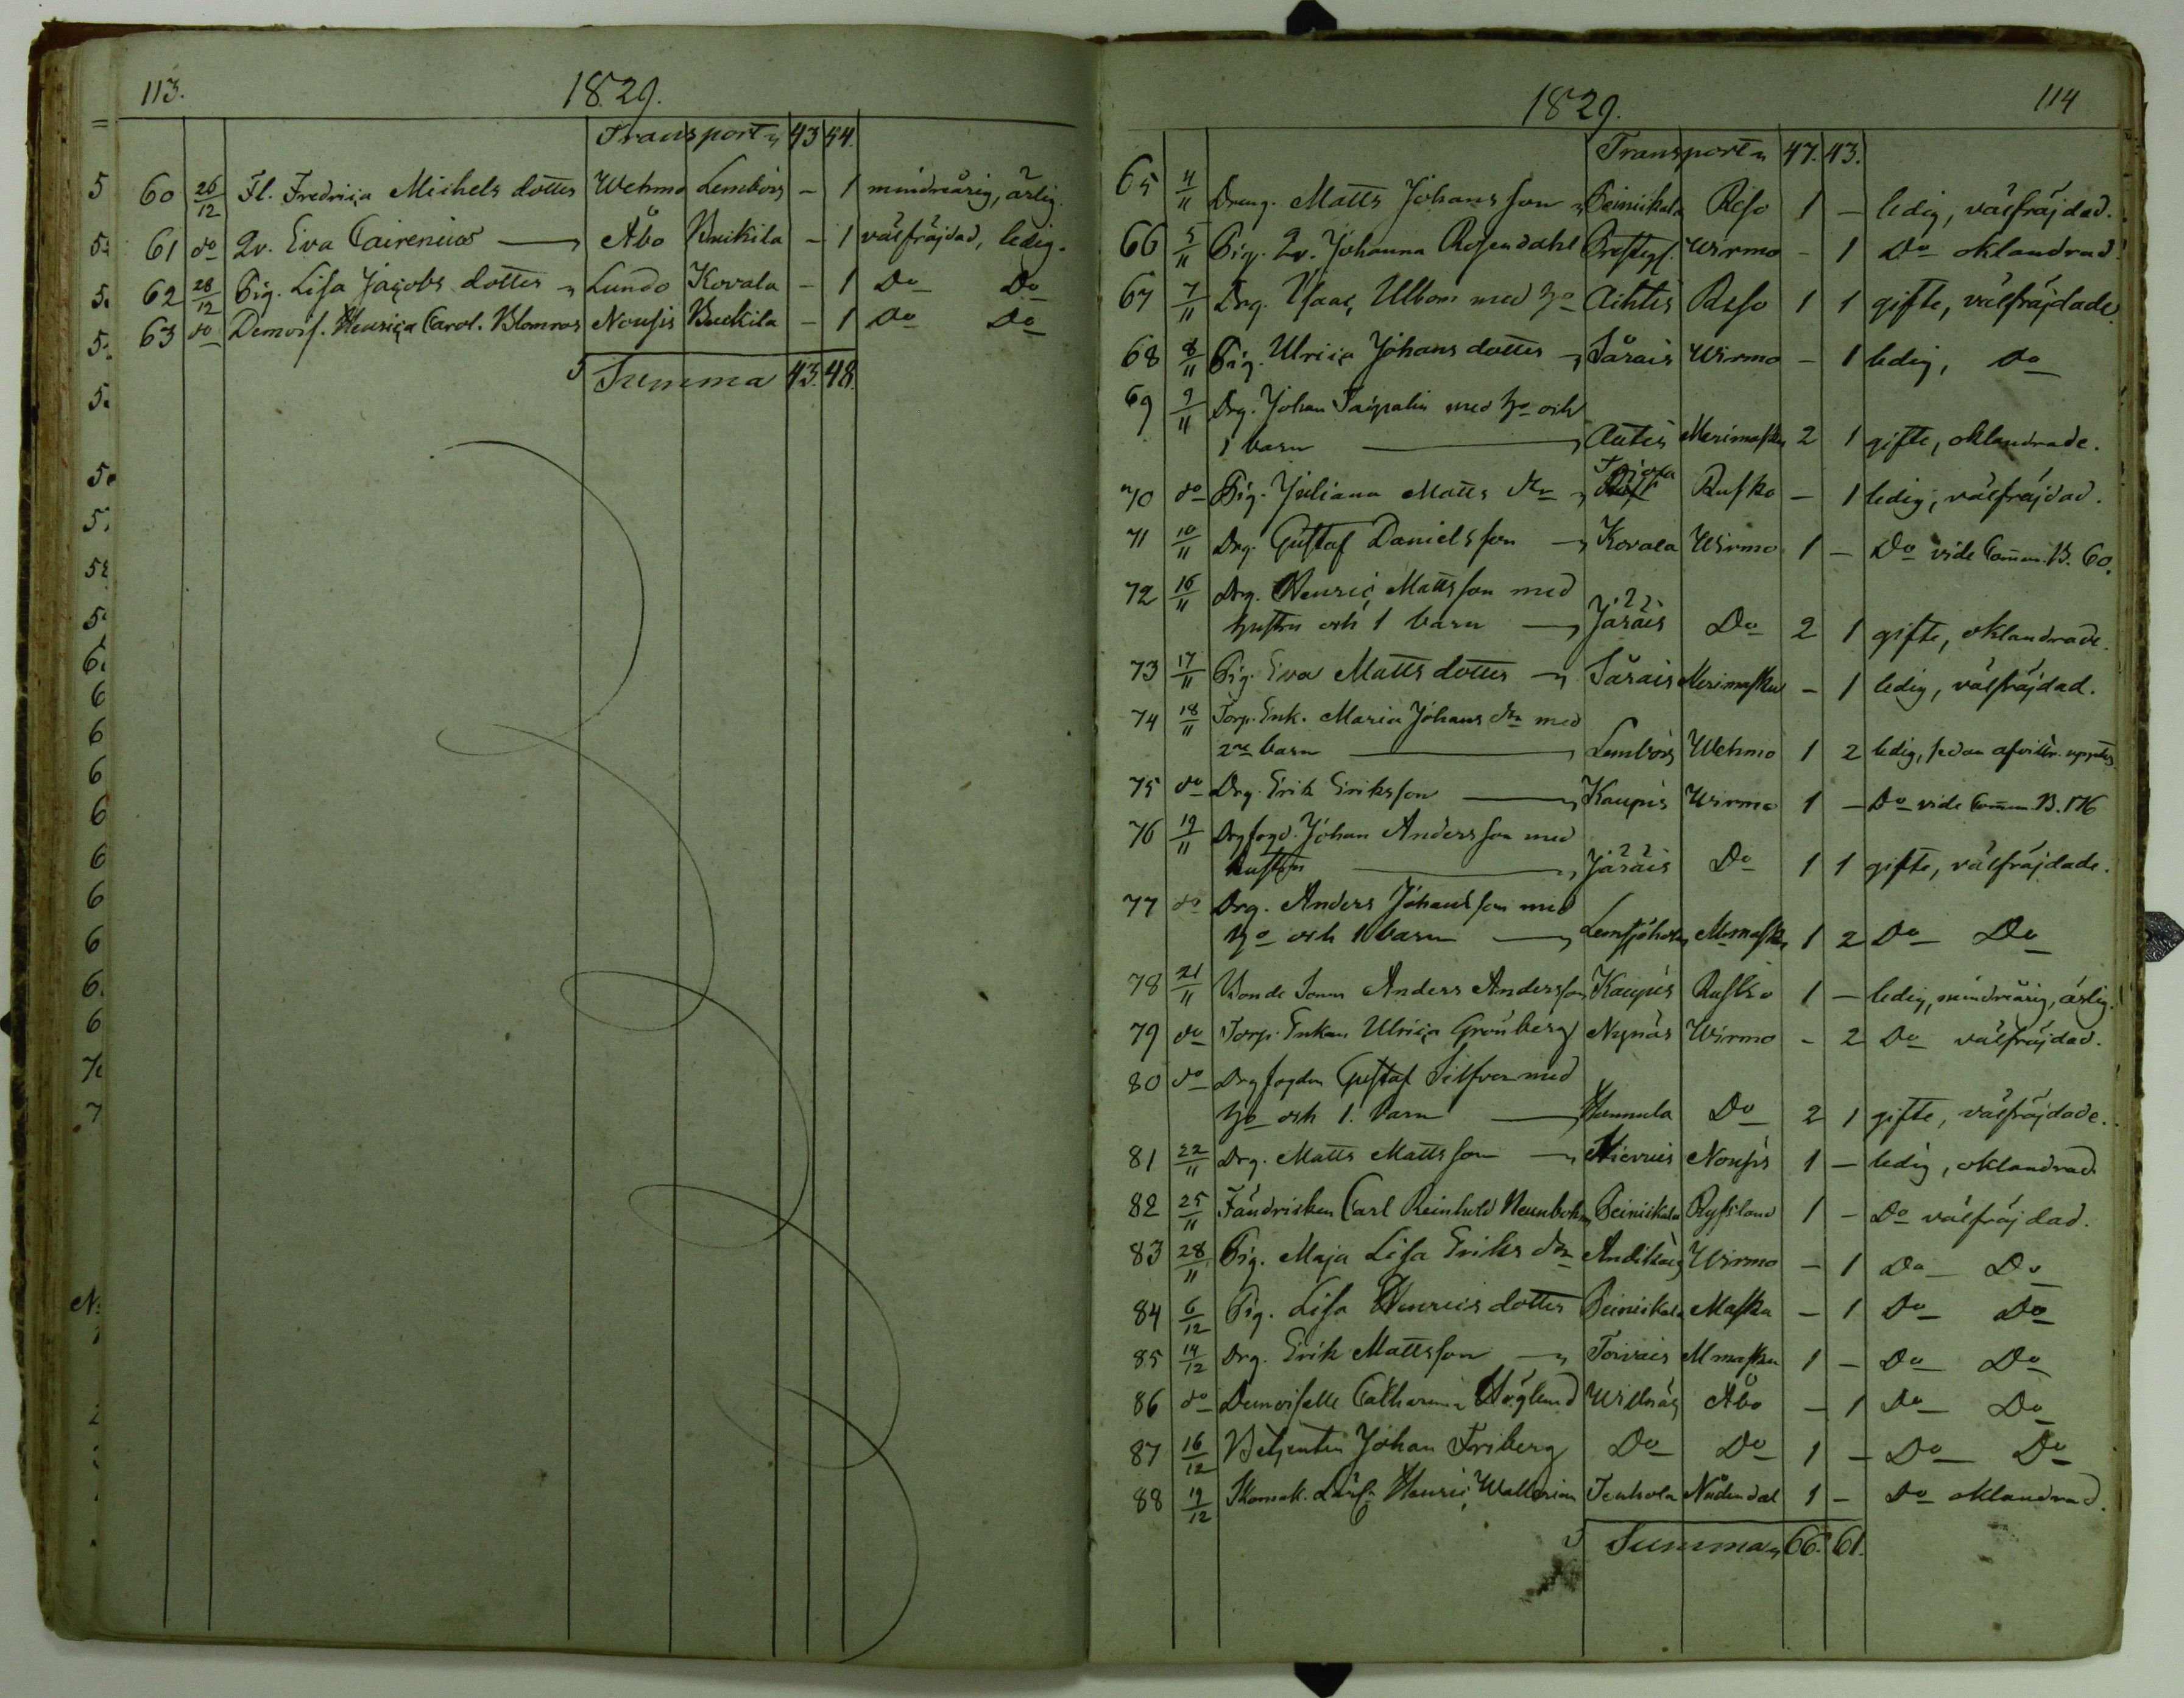 113.
1829.
Transport 43 54.
60 26/12 Fl. Fredrica Michels dotter Wehmo Lembois - 1 mindreårig, ärlig.
61 do Qv. Eva Cairenius Åbo - 1 välfräjdad, ledig.
62 28/12 Pig. Lisa Jacobs dotter Lundo Kovala - 1 Do Do
63 do Demois. Henrica Carol. Blomros Nousis - 1 Do Do
Summa 43. 48.
1829.
114
Transport 47. 43.
65 4/11 Dreng. Matts Johansson Peinikala Reso 1 - ledig, välfräjdad.
66 5/11 Pig. Qv. Johanna Rosendahl Prestg. Wirmo - 1 Do oklandrad.
67 7/11 Drg. Isaac Ulbom med Ho Aihtis Reso 1 1 gifte, välfräjdade.
68 8/11 Pig. Ulrica Johans dotter Sårais Wirmo - 1 ledig, Do
69 9/11 Drg. Johan Taipalin med Ho och
1 barn Autis Merimasku 2 1 gifte, oklandrade.
70 do Pig. Juliana Matts dr Rusko - 1 ledig, välfräjdad.
71 10/11 Drg. Gustaf Danielsson Kovala Wirmo 1 - Do vide Comm. B. 60.
72 16/11 Drg. Henric Mattsson med
hustru och 1 barn Järäis Do 2 1 gifte, oklandrade.
73 17/11 Pig. Eva Matts dotter Sårais Merimasku - 1 ledig, välfräjdad.
74 18/11 Torp. Enk. Maria Johans dr med
2ne barn Lembois Wehmo 1 2 ledig, sedan afvittr. uppvis.
75 do Drg. Erik Eriksson Kaupis Wirmo 1 - Do vide Comm. B. 176
76 19/11 Drgfogd. Johan Andersson med
hustru Järäis Do 1 1 gifte, välfräjdade.
77 do Drg. Anders Johansson med
Ho och 1 barn Lemsjöholm Mmasku 1 2 Do Do
78 21/11 Bonde Sonen Anders Andersson Kaupis Rusko 1 - ledig, mindreårig, ärlig.
79 do Torp. Enkan Ulrica Grönberg Nynäs Wirmo - 2 Do välfräjdad.
80 do Drgfogden Gustaf Silfver med
Ho och 1. barn Hannula Do 2 1 gifte, välfräjdade.
81 22/11 Drg. Matts Mattsson Hiervis Nousis 1 - ledig, oklandrad
82 25/11 Fändriken Carl Reinhold Peinikala Ryssland 1 - Do välfräjdad.
83 28/11 Pig. Maja Lisa Eriks dr Wirmo - 1 Do Do
84 6/12 Pig. Lisa Henrics dotter Peinikala Masku - 1 Do Do
85 14/12 Drg. Erik Mattsson Toivais Mmasku 1 - Do Do
86 do Demoiselle Catharina Höglund Willnäs Åbo - 1 Do Do
87 16/12 Betjenten Johan Friberg Do Do 1 - Do Do
88 19/12 Skomak. Lärl. Henric Wallerian Tenhola Nådendal 1 - Do oklandrad.
Summa 66. 61.